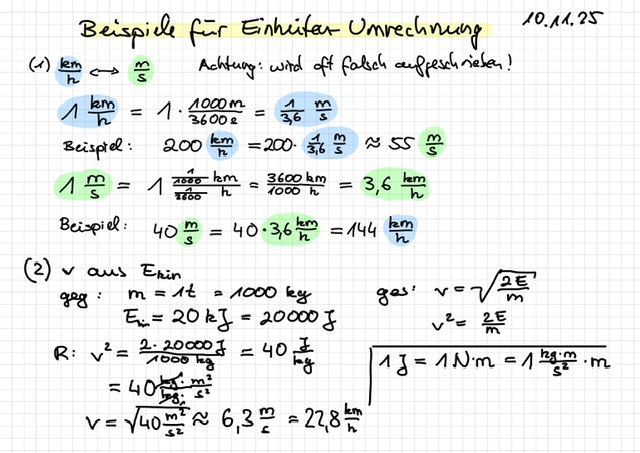 Beispiele für Einheiten Umrechnung 10.11.25
(1) km/h ↔ m/s Achtung: wird oft falsch aufgeschrieben!
1 km/h = 1 · 1000m/3600s = 1/3,6 m/s
Beispiel: 200 km/h = 200 · 1/3,6 m/s ≈ 55 m/s
1 m/s = 1 (1/1000 km)/(1/3600 h) = 3600 km/1000 h = 3,6 km/h
Beispiel: 40 m/s = 40 · 3,6 km/h = 144 km/h
(2) v aus Ekin
geg: m = 1t = 1000 kg ges: v = √(2E/m)
Ekin = 20 kJ = 20000 J v² = 2E/m
R: v² = 2·20000J/1000 kg = 40 J/kg 1 J = 1 N·m = 1 kg·m/s² · m
= 40 kg·m²/kg·s²
v = √(40 m²/s²) ≈ 6,3 m/s = 22,8 km/h